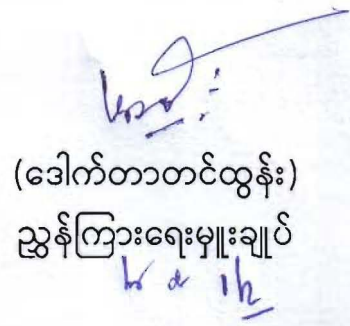 (ဒေါက်တာတင်ထွန်း)
ညွှန်ကြားရေးမှူးချုပ်